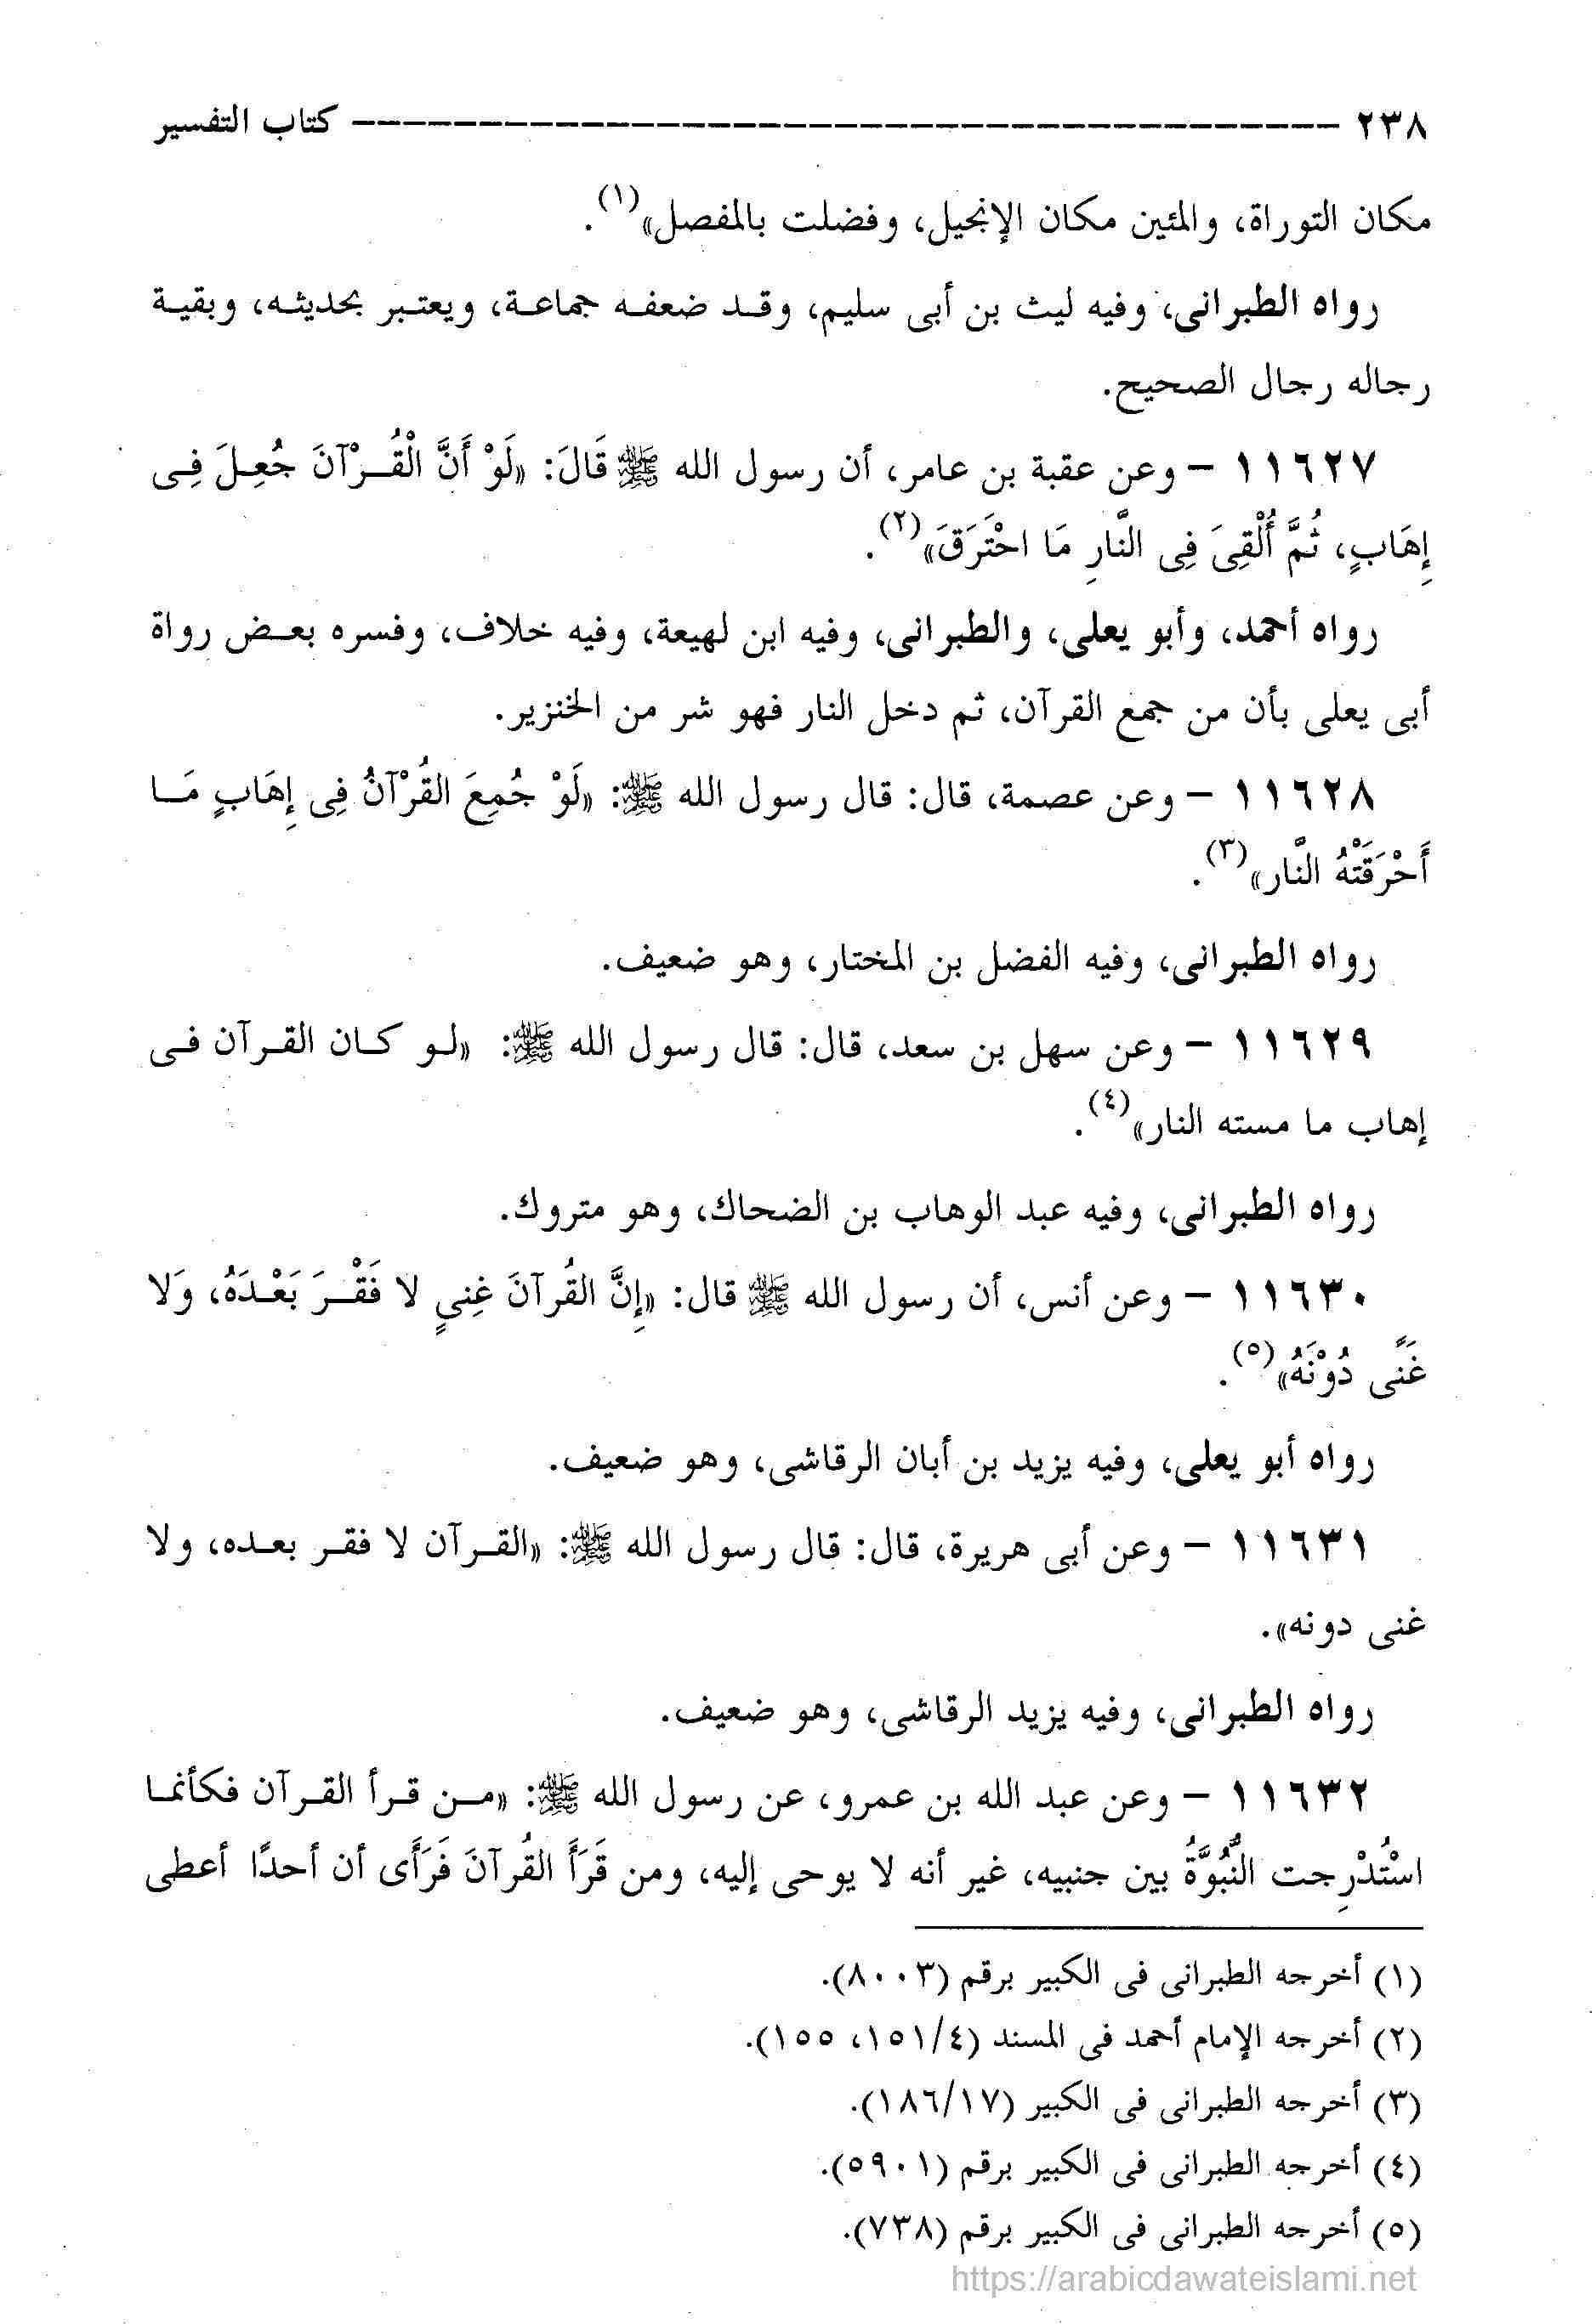 ٢٣٨ ---------------------------------------- كتاب التفسير
مكان التوراة، والمئين مكان الإنجيل، وفضلت بالمفصل»(١).
رواه الطبرانى، وفيه ليث بن أبى سليم، وقد ضعفه جماعة، ويعتبر بحديثه، وبقية
رجاله رجال الصحيح.
١١٦٢٧ - وعن عقبة بن عامر، أن رسول الله ﷺ قَالَ: «لَوْ أَنَّ الْقُرْآنَ جُعِلَ فِى
إِهَابٍ، ثُمَّ أُلْقِىَ فِى النَّارِ مَا احْتَرَقَ»(٢).
رواه أحمد، وأبو يعلى، والطبرانى، وفيه ابن لهيعة، وفيه خلاف، وفسره بعض رواة
أبى يعلى بأن من جمع القرآن، ثم دخل النار فهو شر من الخنزير.
١١٦٢٨ - وعن عصمة، قال: قال رسول الله ﷺ: «لَوْ جُمِعَ القُرْآنُ فِى إِهَابٍ مَا
أَحْرَقَتْهُ النَّار»(٣).
رواه الطبرانى، وفيه الفضل بن المختار، وهو ضعيف.
١١٦٢٩ - وعن سهل بن سعد، قال: قال رسول الله ﷺ: «لو كان القرآن فى
إهاب ما مسته النار»(٤).
رواه الطبرانى، وفيه عبد الوهاب بن الضحاك، وهو متروك.
١١٦٣٠ - وعن أنس، أن رسول الله ﷺ قال: «إِنَّ القُرآنَ غِنيٍ لا فَقْرَ بَعْدَهُ، وَلا
غَنًى دُوْنَهُ»(٥).
رواه أبو يعلى، وفيه يزيد بن أبان الرقاشى، وهو ضعيف.
١١٦٣١ - وعن أبى هريرة، قال: قال رسول الله ﷺ: «القرآن لا فقر بعده، ولا
غنى دونه».
رواه الطبرانى، وفيه يزيد الرقاشى، وهو ضعيف.
١١٦٣٢ - وعن عبد الله بن عمرو، عن رسول الله ﷺ: «من قرأ القرآن فكأنما
اسْتُدْرِجت النُّبُوَّةُ بين جنبيه، غير أنه لا يوحى إليه، ومن قَرَأَ القُرآنَ فَرَأَى أن أحدًا أعطى
(١) أخرجه الطبرانى فى الكبير برقم (٨٠٠٣).
(٢) أخرجه الإمام أحمد فى المسند (١٥١/٤، ١٥٥).
(٣) أخرجه الطبرانى فى الكبير (١٨٦/١٧).
(٤) أخرجه الطبرانى فى الكبير برقم (٥٩٠١).
(٥) أخرجه الطبرانى فى الكبير برقم (٧٣٨).
https://arabicdawateislami.net